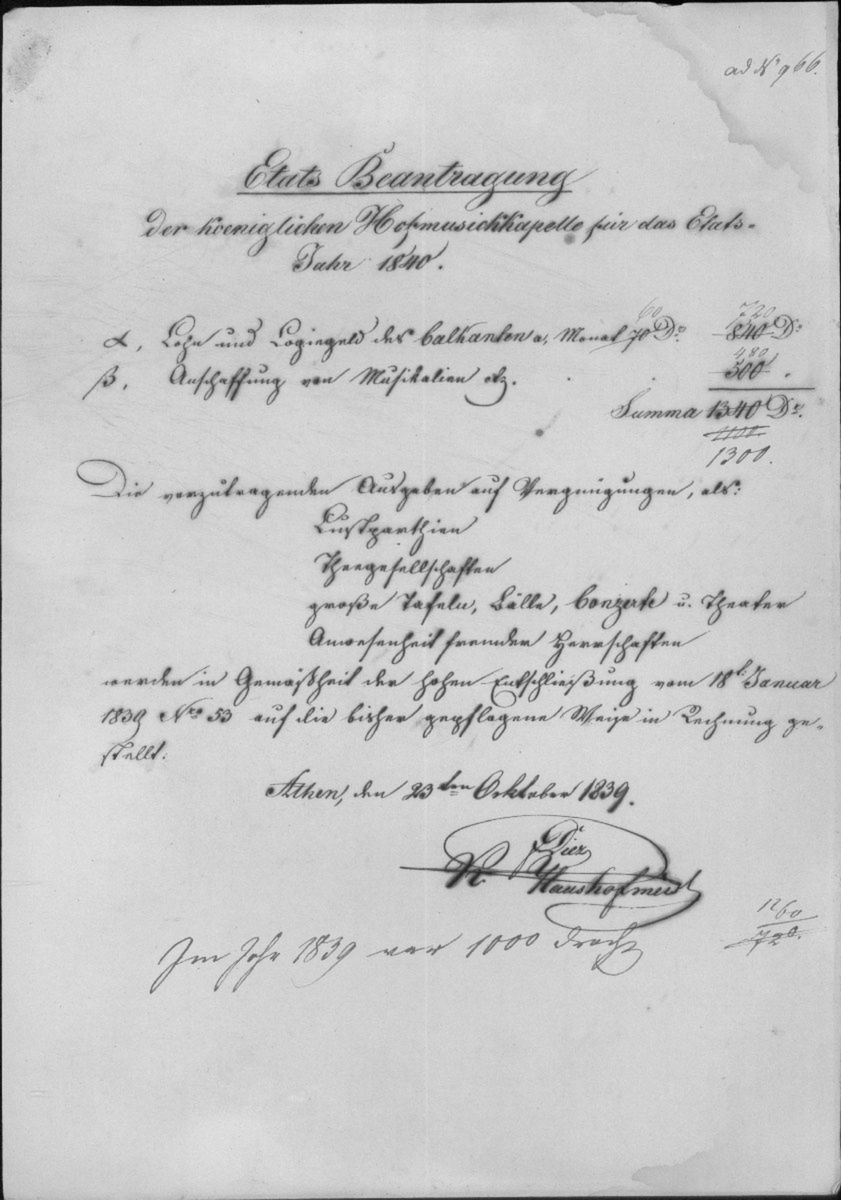 ad No 966.
Etats Beantragung
der koeniglichen Hofmusickkapelle für das Etats-
Jahr 1840.
60 720
α, Lohn und Logiegeld des Calkanten a, Monat 70 Dr. 840 Dr
480
β, Anschaffung von Musikalien etz. . . 500 .
Summa 1340 Dr.
1100.
1300.
Die vorzutragenden Ausgaben auf Vergnügungen, als:
Lustparthien
Theegesellschaften
große Tafeln, Bälle, Conzerte u. Theater
Anwesenheit fremder Herrschaften
werden in Gemäßheit der hohen Entschließung vom 18t. Januar
1839 Nro 53 auf die bisher gepflogene Weise in Rechnung ge-
stellt.
Athen, den 23ten Oktober 1839.
Diez
K. Haushofmeist
1260
720.
Im Jahr 1839 war 1000 Drach